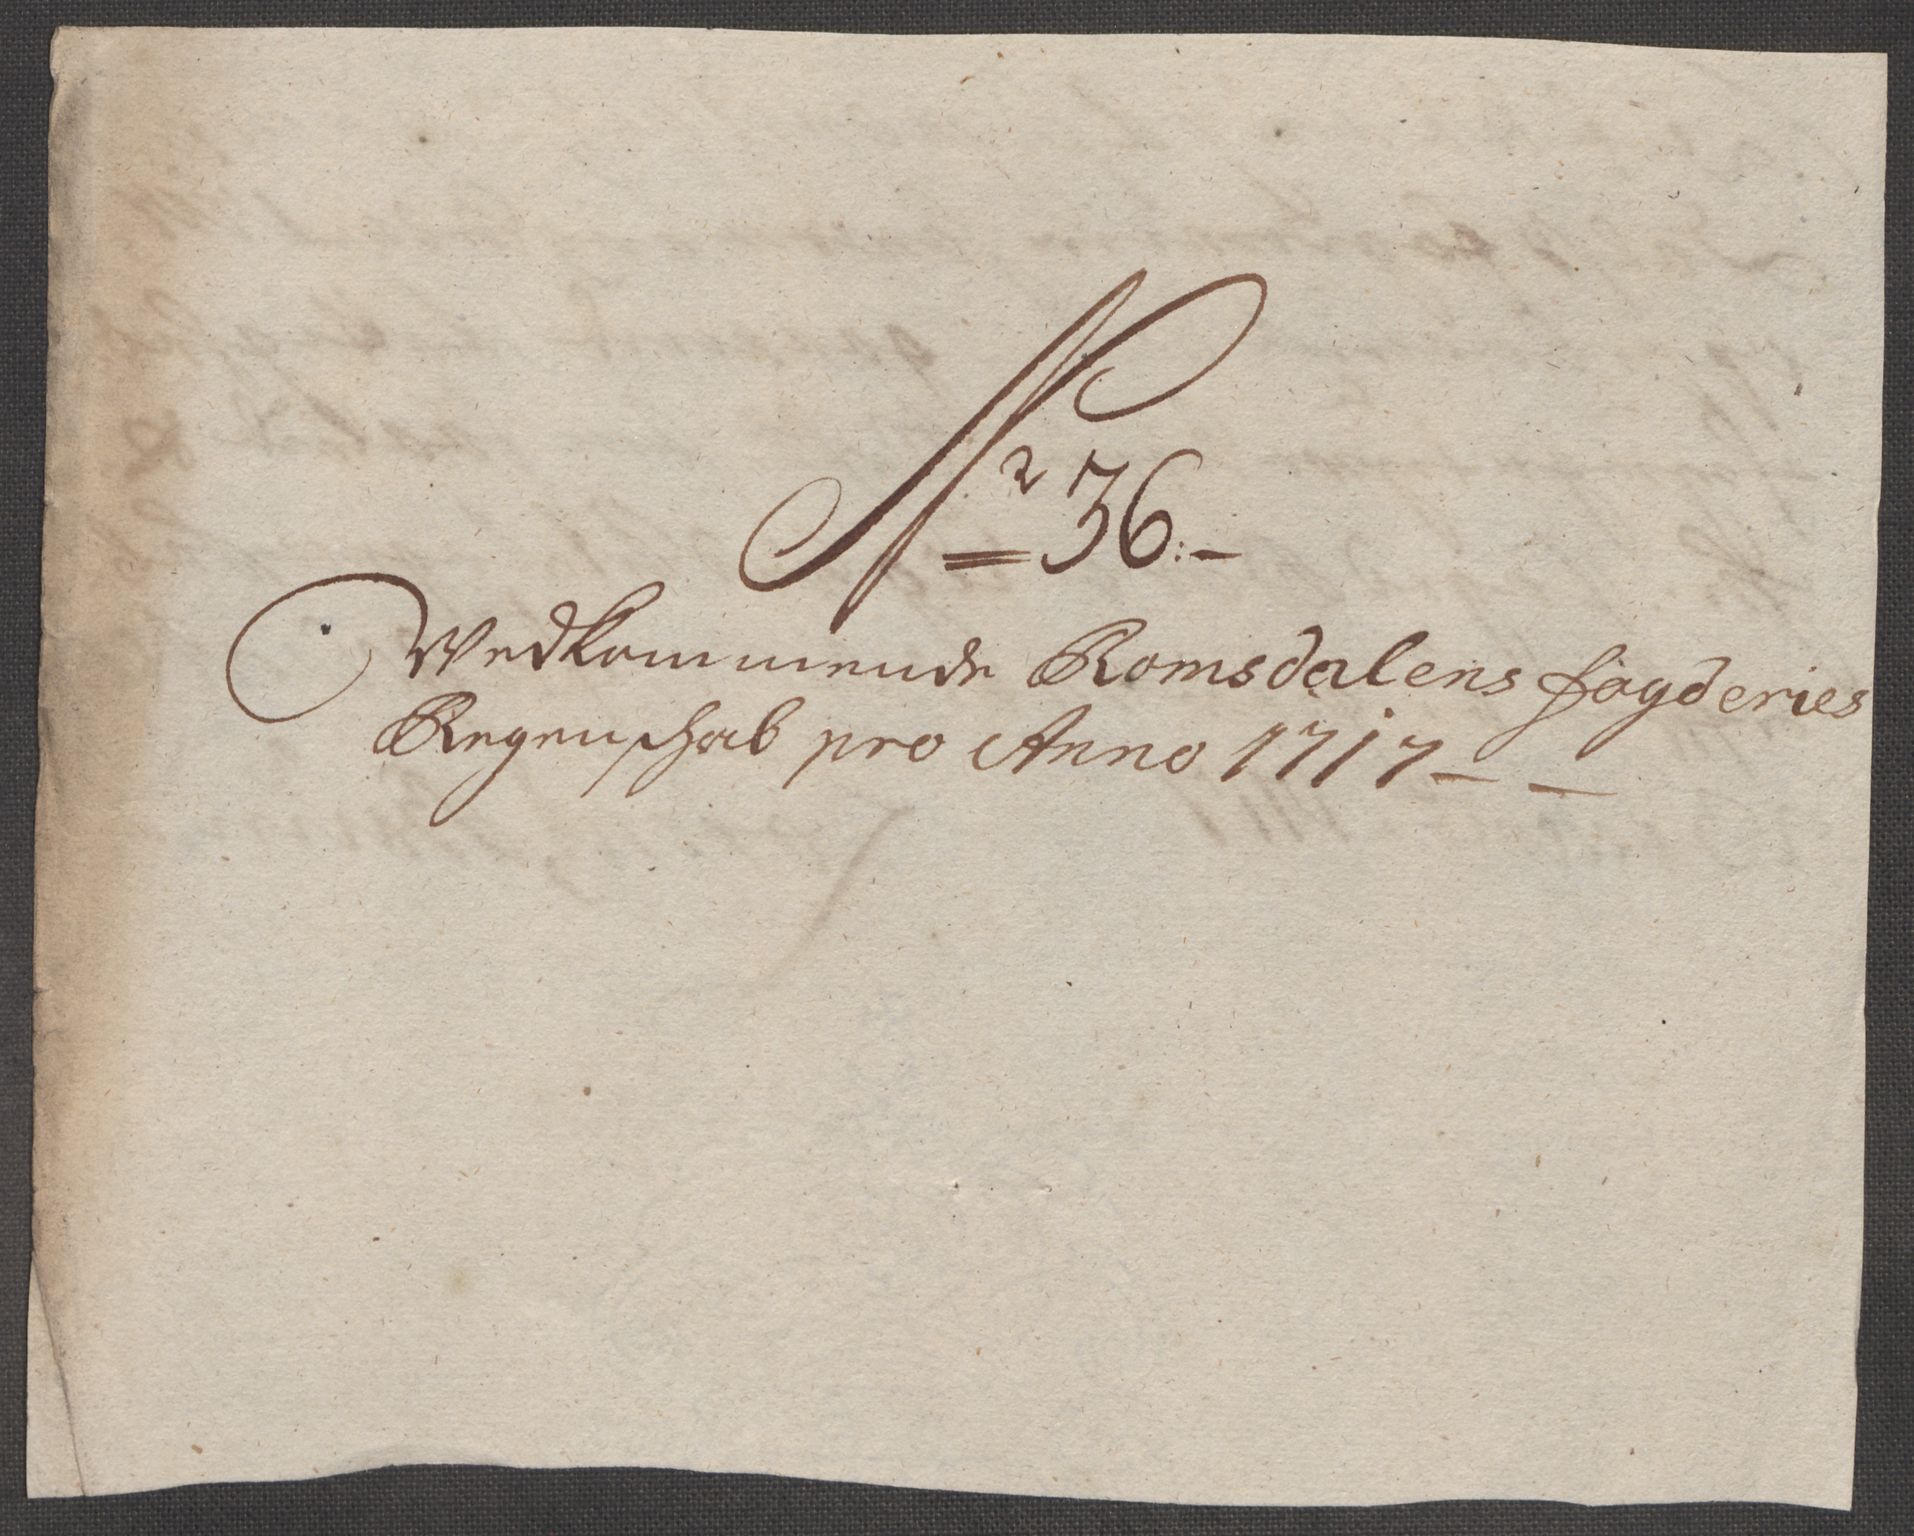 No 36:-
Vedkommende Romsdalens fogderies
Regenschab pro Anno 1717 - -